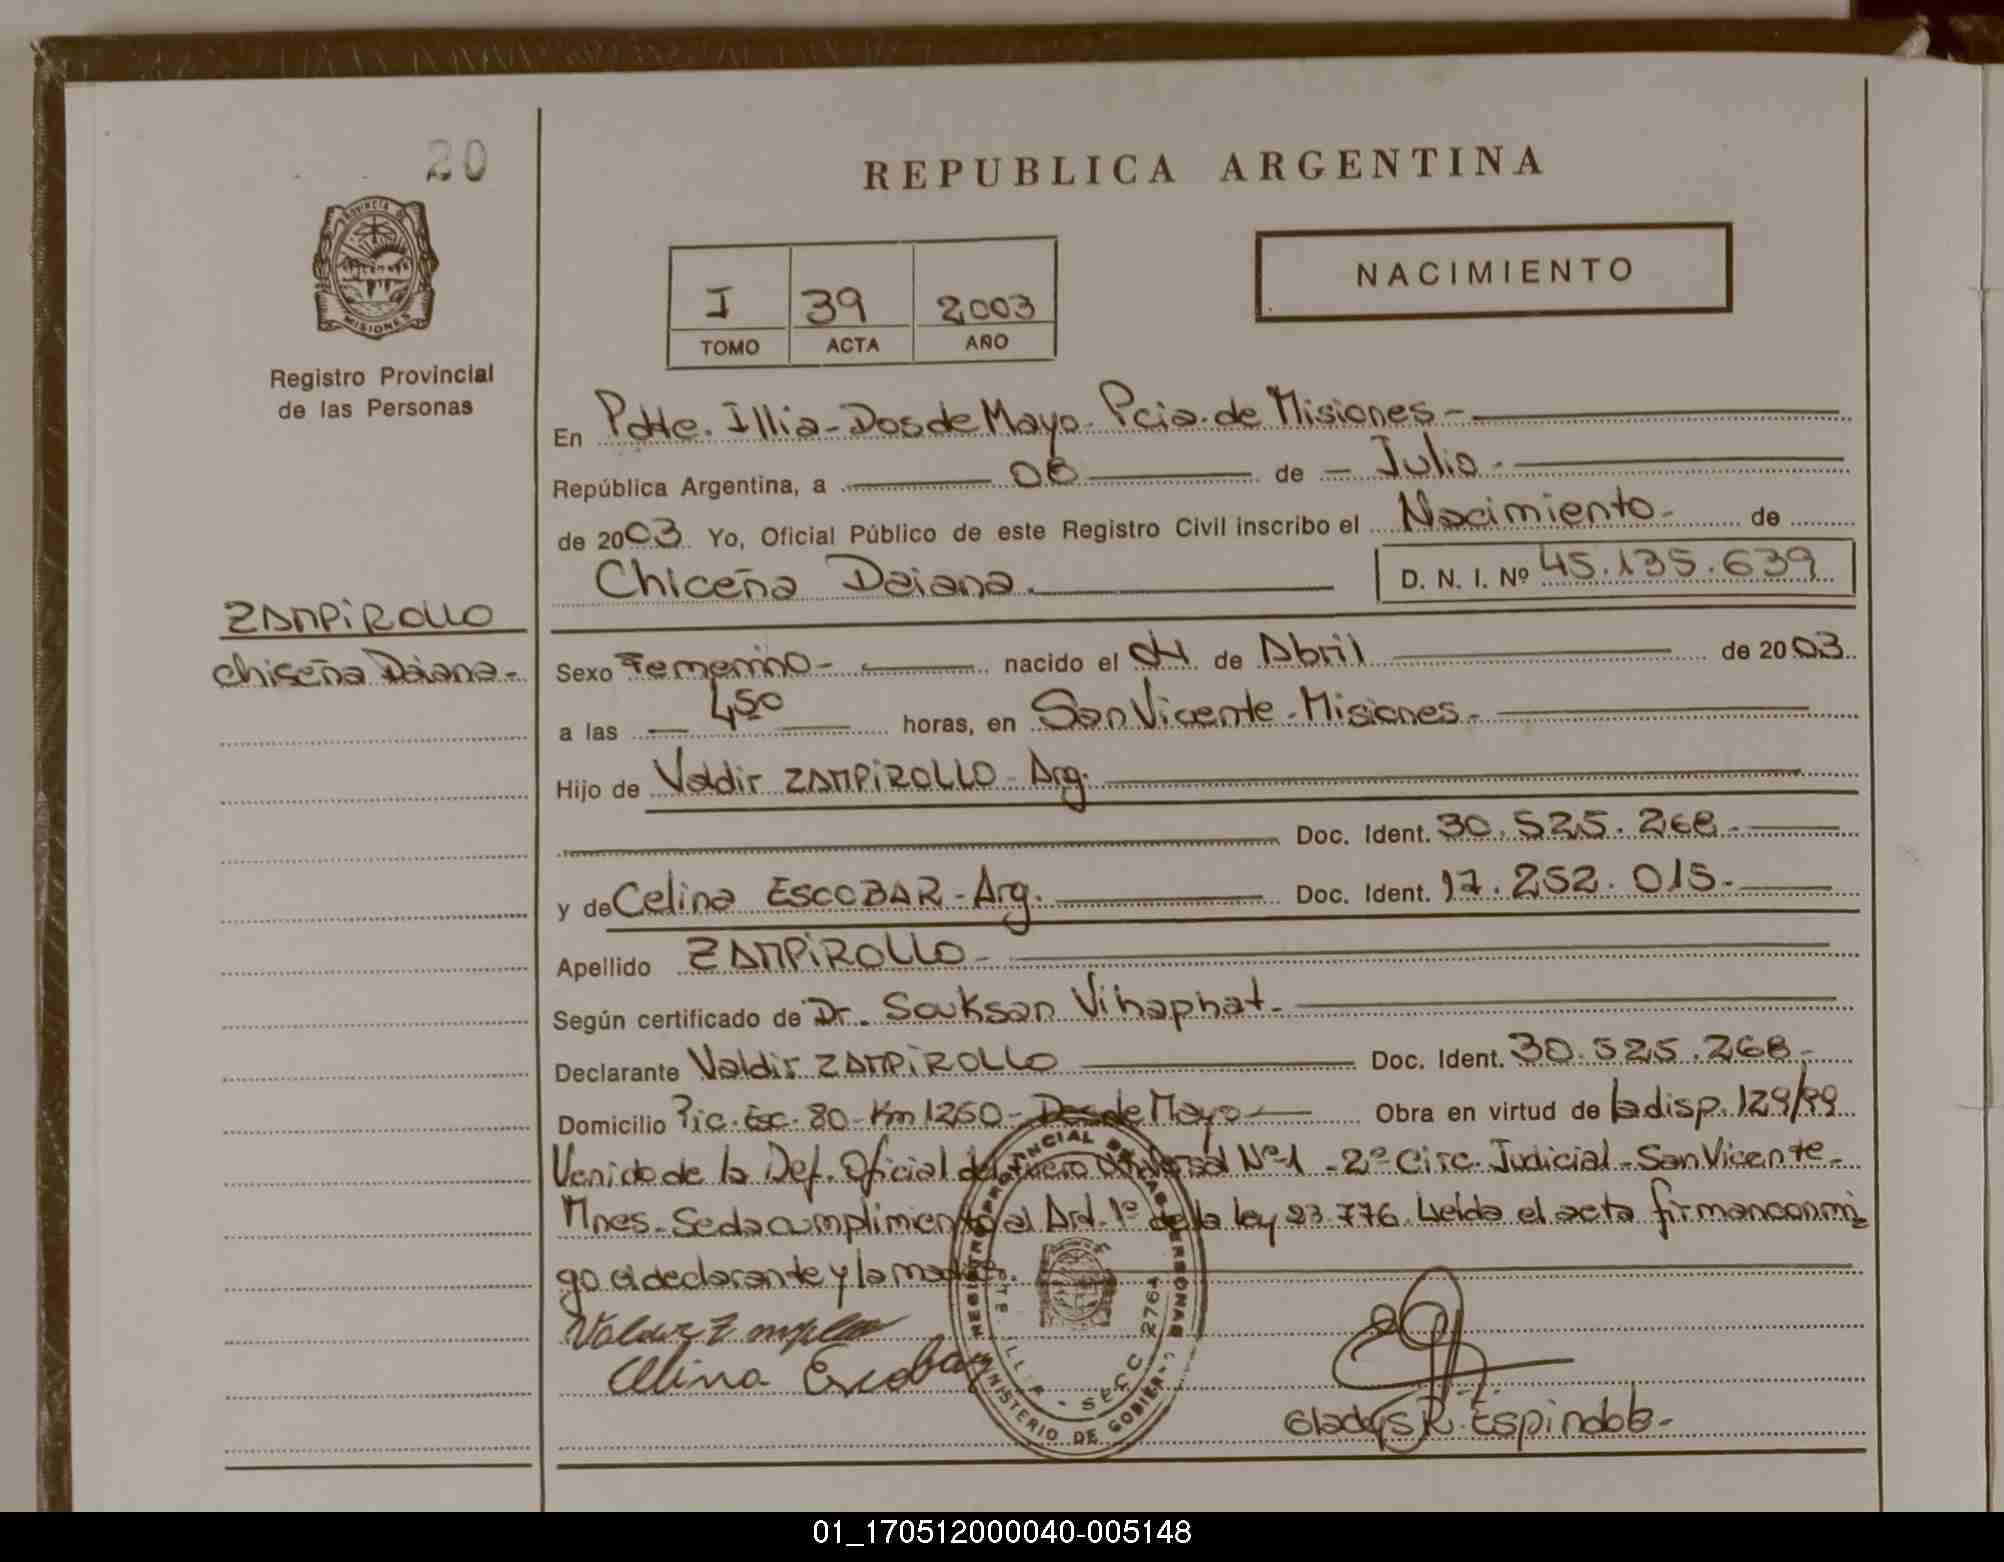 20
REPUBLICA ARGENTINA
PROVINCIA DE
MISIONES
Registro Provincial
de las Personas
NACIMIENTO
I 39 2003
TOMO ACTA AÑO
En Pdte. Illia - Dos de Mayo - Pcia. de Misiones -
República Argentina, a 08 de - Julio -
de 2003 Yo, Oficial Público de este Registro Civil inscribo el Nacimiento - de
Chiceña Daiana. D. N. I. Nº 45.135.639
ZAMPiROLLO
Chiseña Daiana -
Sexo Femenino - nacido el 04 de Abril de 2003
a las 4,50 horas, en San Vicente - Misiones -
Hijo de Valdir ZAMPiROLLO - Arg.
Doc. Ident. 30.525.268 -
y de Celina ESCOBAR - Arg. Doc. Ident. 17.252.015 -
Apellido ZAMPiROLLO -
Según certificado de Dr. Souksan Vihaphat -
Declarante Valdir ZAMPiROLLO Doc. Ident. 30.525.268 -
Domicilio Pic. Esc. 80 - Km 1260 - Dos de Mayo - Obra en virtud de la disp. 129/99
Venido de la Def. Oficial del Fuero Universal Nº 1 - 2º Circ. Judicial - San Vicente -
Mnes - Se da cumplimiento al Art. 1º de la ley 23.776. Leída el acta firman conmi
go el declarante y la madre.
Celina Escobar
REGISTRO PROVINCIAL DE LAS PERSONAS
MINISTERIO DE GOBIER
PTE. ILLIA - SECC 2764
Gladys R. Espindola -
01_170512000040-005148